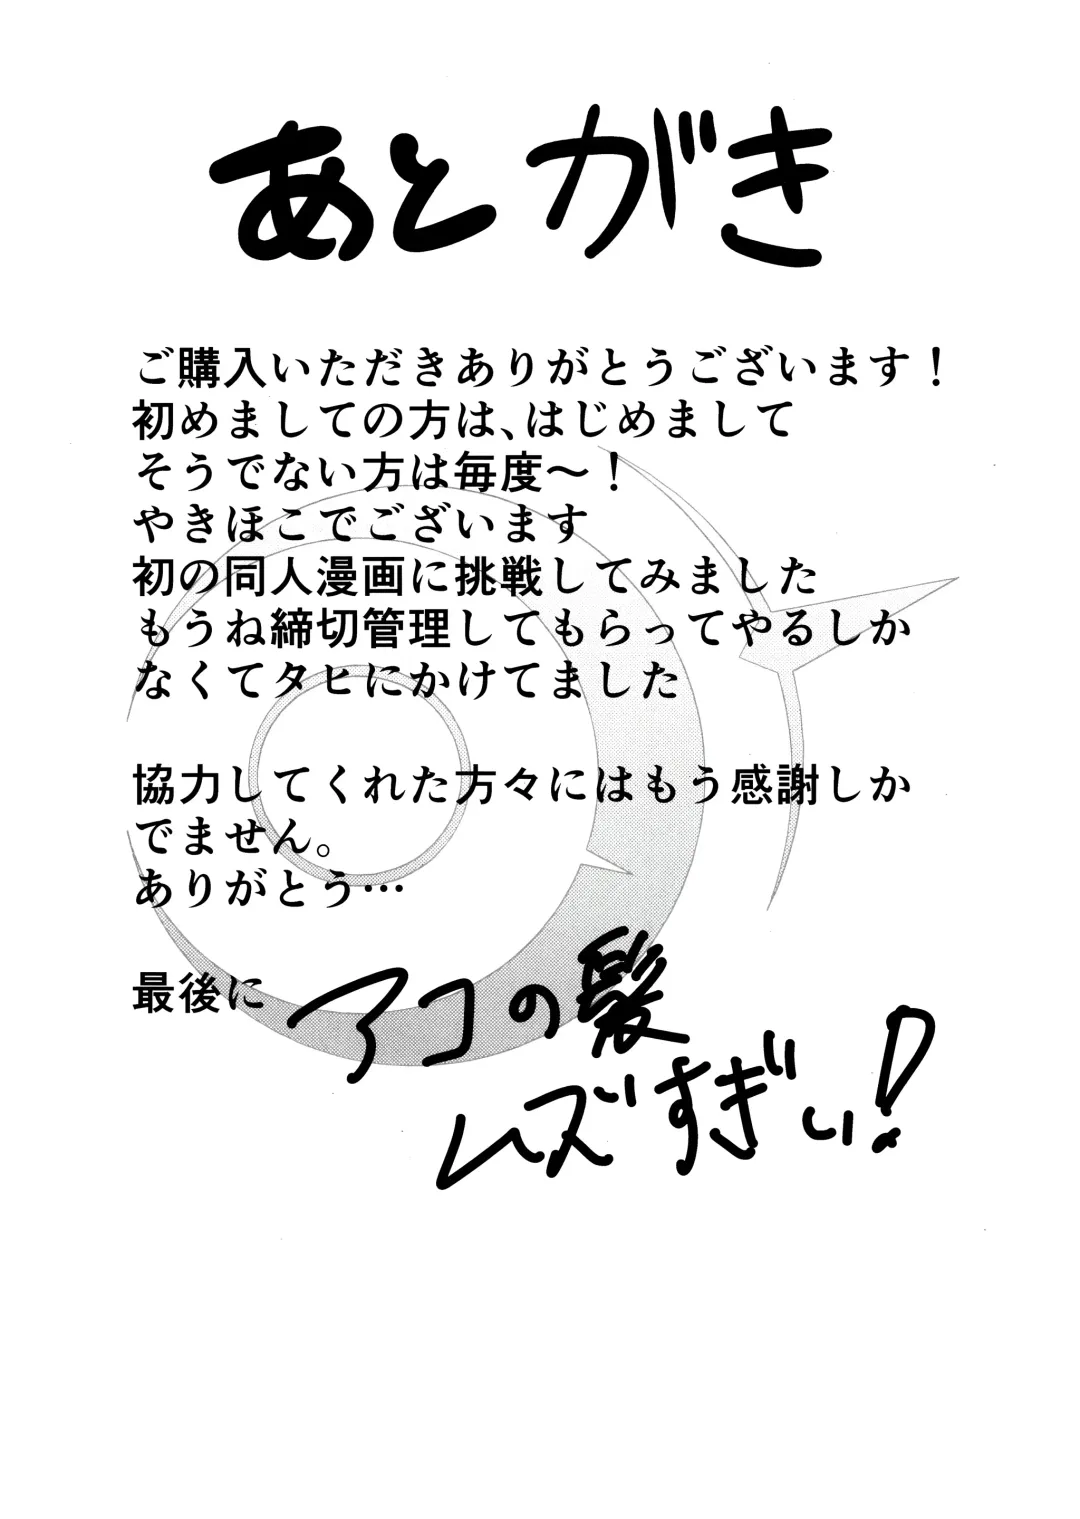 あとがき
ご購入いただきありがとうございます！
初めましての方は、はじめまして
そうでない方は毎度～！
やきほこでございます
初の同人漫画に挑戦してみました
もうね締切管理してもらってやるしか
なくてタヒにかけてました
協力してくれた方々にはもう感謝しか
でません。
ありがとう…
最後に アコの髪
ムズすぎぃ！